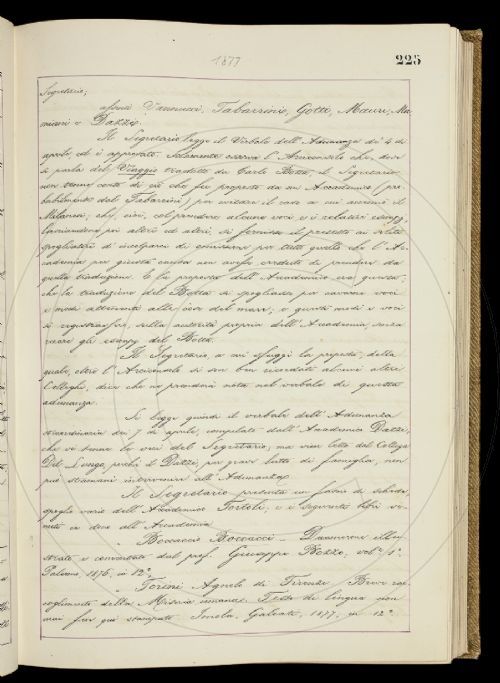 1877
225
Segretario;
assenti Vannucci, Tabarrini, Gotti, Mauri, Ma-
miani e Dazzi.
Il Segretario legge il Verbale dell'Adunanza de' 4 di
aprile, ed è approvato. Solamente osserva l'Arciconsolo che, dove
si parla del Viaggio tradotto da Carlo Botta, il Segretario
non tenne conto di ciò che fu proposto da un Accademico (pro-
babilmente dal Tabarrini), per evitare il caso a cui accennò il
Milanesi; che, cioè, col prendere alcune voci e i relativi esempj,
lasciandone poi altri ed altri, si fornisca il pretesto ai soliti
spogliatori d'accusarci di omissione per tutto quello che l'Ac-
cademia per giusta causa non avesse creduto di prendere da
quella traduzione. E la proposta dell'Accademico era questa:
che la traduzione del Botta si spogliasse per cavarne voci
e modi attinenti alle cose del mare; e questi modi e voci
si registrassero, sulla autorità propria dell'Accademia, senza
recare gli esempj del Botta.
Il Segretario, a cui sfuggì la proposta, della
quale, oltre l'Arciconsolo si son ben ricordati alcuni altri
Colleghi, dice che ne prenderà nota nel verbale di questa
adunanza.
Si legge quindi il verbale dell'Adunanza
straordinaria dei 7 di aprile, compilato dall'Accademico Dazzi,
che vi tenne le veci del Segretario; ma vien letto dal Collega
Del Lungo, poichè il Dazzi, per grave lutto di famiglia, non
può stamani intervenire all'Adunanza.
Il Segretario presenta un fascio di schede,
spoglio vario dell'Accademico Tortoli, e i seguenti libri ve-
nuti in dono all'Accademia
Boccaccio Boccacci – Decamerone illu-
strato e comentato dal prof. Giuseppe Bozzo; vol. 1°.
Palermo, 1876, in 12°.
Torini Agnolo di Firenze / Breve rac-
coglimento della Miseria umana. Testo di lingua non
mai fin qui stampato. Imola, Galeati, 1877, in 12°.